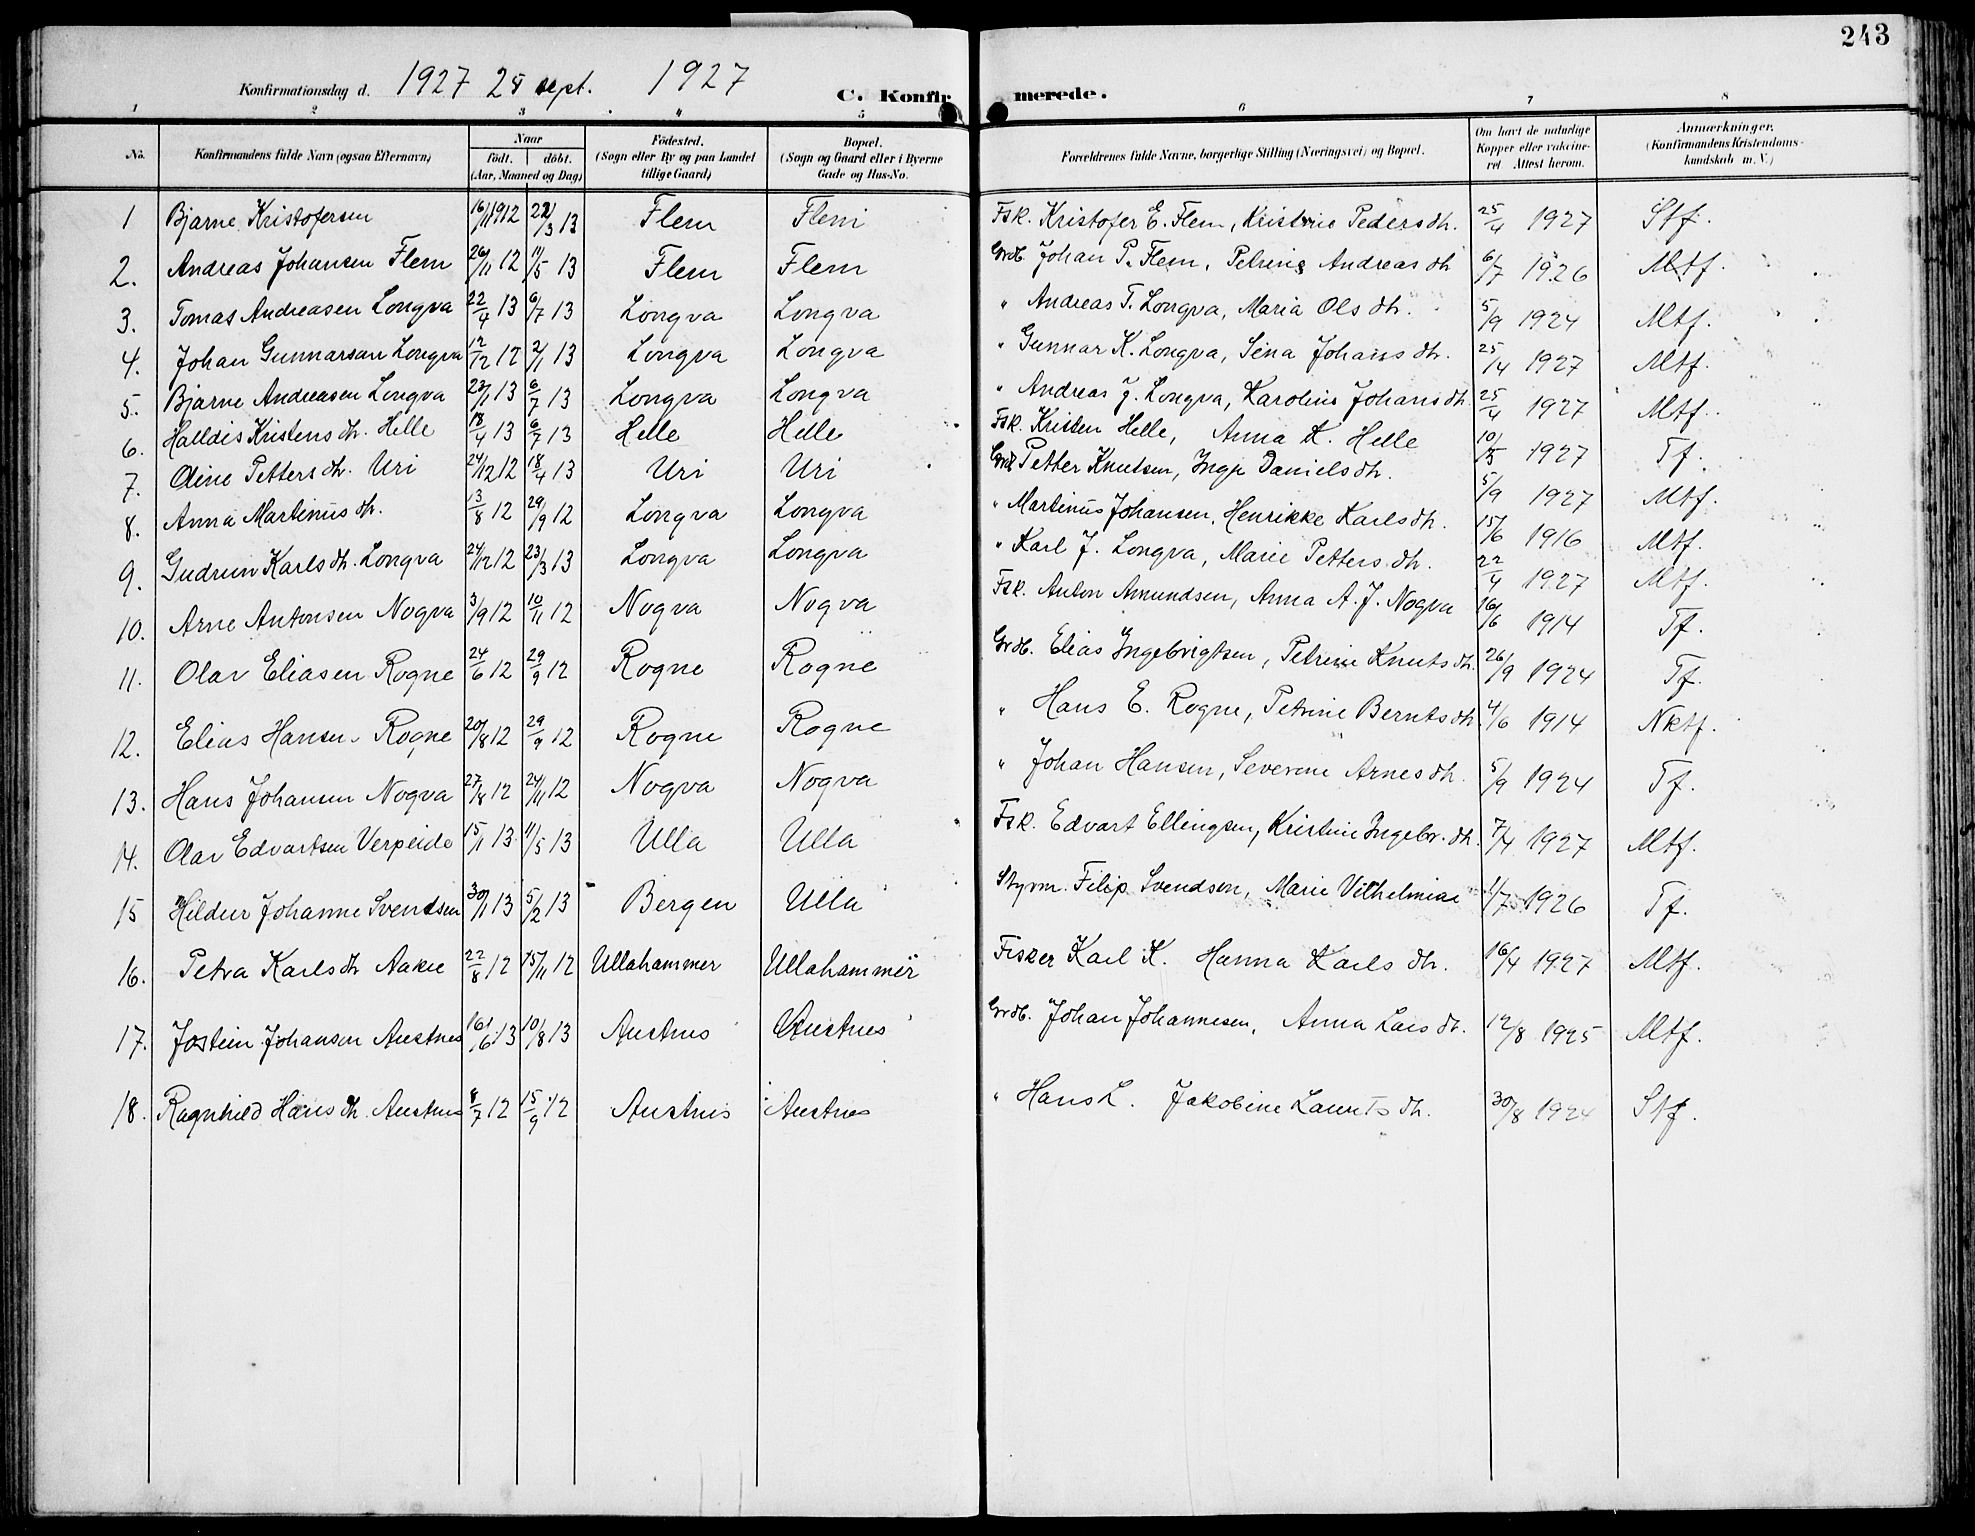 243
Konfirmationsdag d. 1927 25 sept. 1927 C. Konfirmerede.
1 2 3 4 5 6 7 8
No. | Konfirmandens fulde Navn (ogsaa Efternavn) | Naar født. døbt. (Aar, Maaned og Dag) | Fødested. (Sogn eller By og paa Landet tillige Gaard) | Bopæl. (Sogn og Gaard eller i Byerne Gade og Hus-No. | Forældrenes fulde Navne, borgerlige Stilling (Næringsvei) og Bopæl. | Om havt de naturlige Kopper eller vaccineret Attest herom. | Anmærkninger. (Konfirmandens Kristendomskundskab m. V.)
1 Bjarne Kristofersen 16/11 1912 /3 13 Flem Flem Fsk. Kristofer E. Flem, Kristine Pedersdh. 25/4 1927 Stf.
2. Andreas Johansen Flem 26/11 12 11/5 13 Flem Flem Grdb. Johan P. Flem, Petrine Andreasdh 6/7 1926 Mtf.
3. Tomas Andreasen Longva 22/4 13 6/7 13 Longva Longva " Andreas T. Longva, Maria Olsdh. 5/9 1924 Mtf.
4. Johan Gunnarsen Longva 12/12 12 2/1 13 Longva Longva " Gunnar K. Longva, Sina Johansdh. 25/4 1927 Mtf.
5. Bjarne Andreasen Longva 23/1 13 6/7 13 Longva Longva " Andreas J. Longva, Karoline Johansdh 25/4 1927 Mtf.
6. Halldis Kristensdh. Helle 18/4 13 6/7 13 Helle Helle Fsk. Kristen Helle, Anna K. Helle 10/5 1927 Tf.
7. Oline Pettersdh. Uri 24/12 12 18/4 13 Uri Uri Grdb. Petter Knutsen, Inga Danielsdh. 5/9 1927 Mtf.
8. Anna Martinusdh. 13/8 12 29/9 12 Longva Longva " Martinus Johansen, Henrikke Karlsdh. 15/6 1916 Mtf.
9. Gudrun Karlsdh. Longva 24/12 12 23/3 13 Longva Longva " Karl J. Longva, Marie Pettersdh. 22/4 1927 Mtf.
10. Arne Antonsen Nogva 3/9 12 10/11 12 Nogva Nogva Fsk. Anton Amundsen, Anna A. J. Nogva 16/6 1914 Tf.
11. Olav Eliasen Rogne 24/6 12 29/9 12 Rogne Rogne Grdb. Elias Ingebrigtsen, Petrine Knutsdh. 26/9 1924 Tf.
12. Elias Hansen Rogne 20/8 12 29/9 12 Rogne Rogne " Hans E. Rogne, Petrine Berntsdh 4/6 1914 Nktf.
13. Hans Johansen Nogva 27/8 12 24/11 12 Nogva Nogva " Johan Hansen, Severine Arnesdh. 5/9 1924 Tf.
14. Olav Edvartsen Verpeide 15/1 13 11/5 13 Ulla Ulla Fsk. Edvart Ellingsen, Kristine Ingebr.dh. 7/4 1927 Mtf.
15 Hildur Johanne Svendsen 30/1 13 5/2 13 Bergen Ulla Styrm. Filip Svendsen, Marie Vilhelmine 1/7 1926 Tf.
16. Petra Karlsdh Aakre 22/8 12 15/11 12 Ullahammer Ullahammer Fisker Karl K. Hanna Karlsdh. 16/4 1927 Mtf.
17. Jostein Johansen Austnes 16/6 13 10/8 13 Austnes Austnes Grdb. Johan Johannesen, Anna Larsdh. 12/8 1925 Mtf.
18. Ragnhild Hansdh. Austnes 8/7 12 15/9 12 Austnes Austnes " Hans L. Jakobine Lauritsdh. 30/8 1924 Stf.